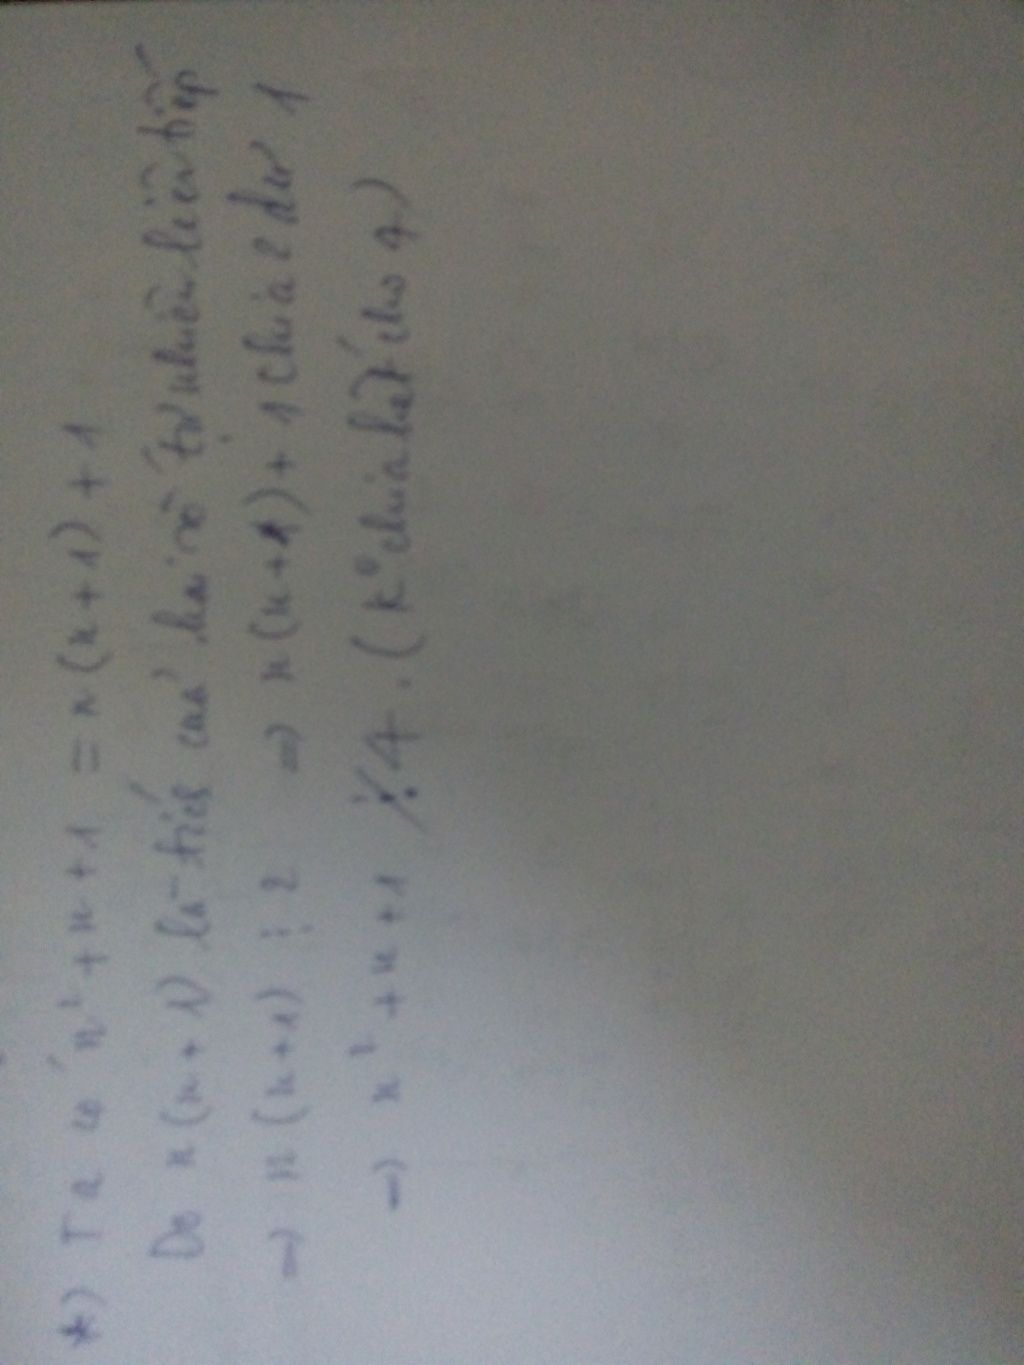 *) Ta có n² + n + 1 = n(n+1) + 1
Do n(n+1) là tích của hai số tự nhiên liên tiếp
→ n(n+1) ⋮ 2 ⇒ n(n+1) + 1 chia 2 dư 1
→ n² + n + 1 ⋮̸ 4 . (k° chia hết cho 4)